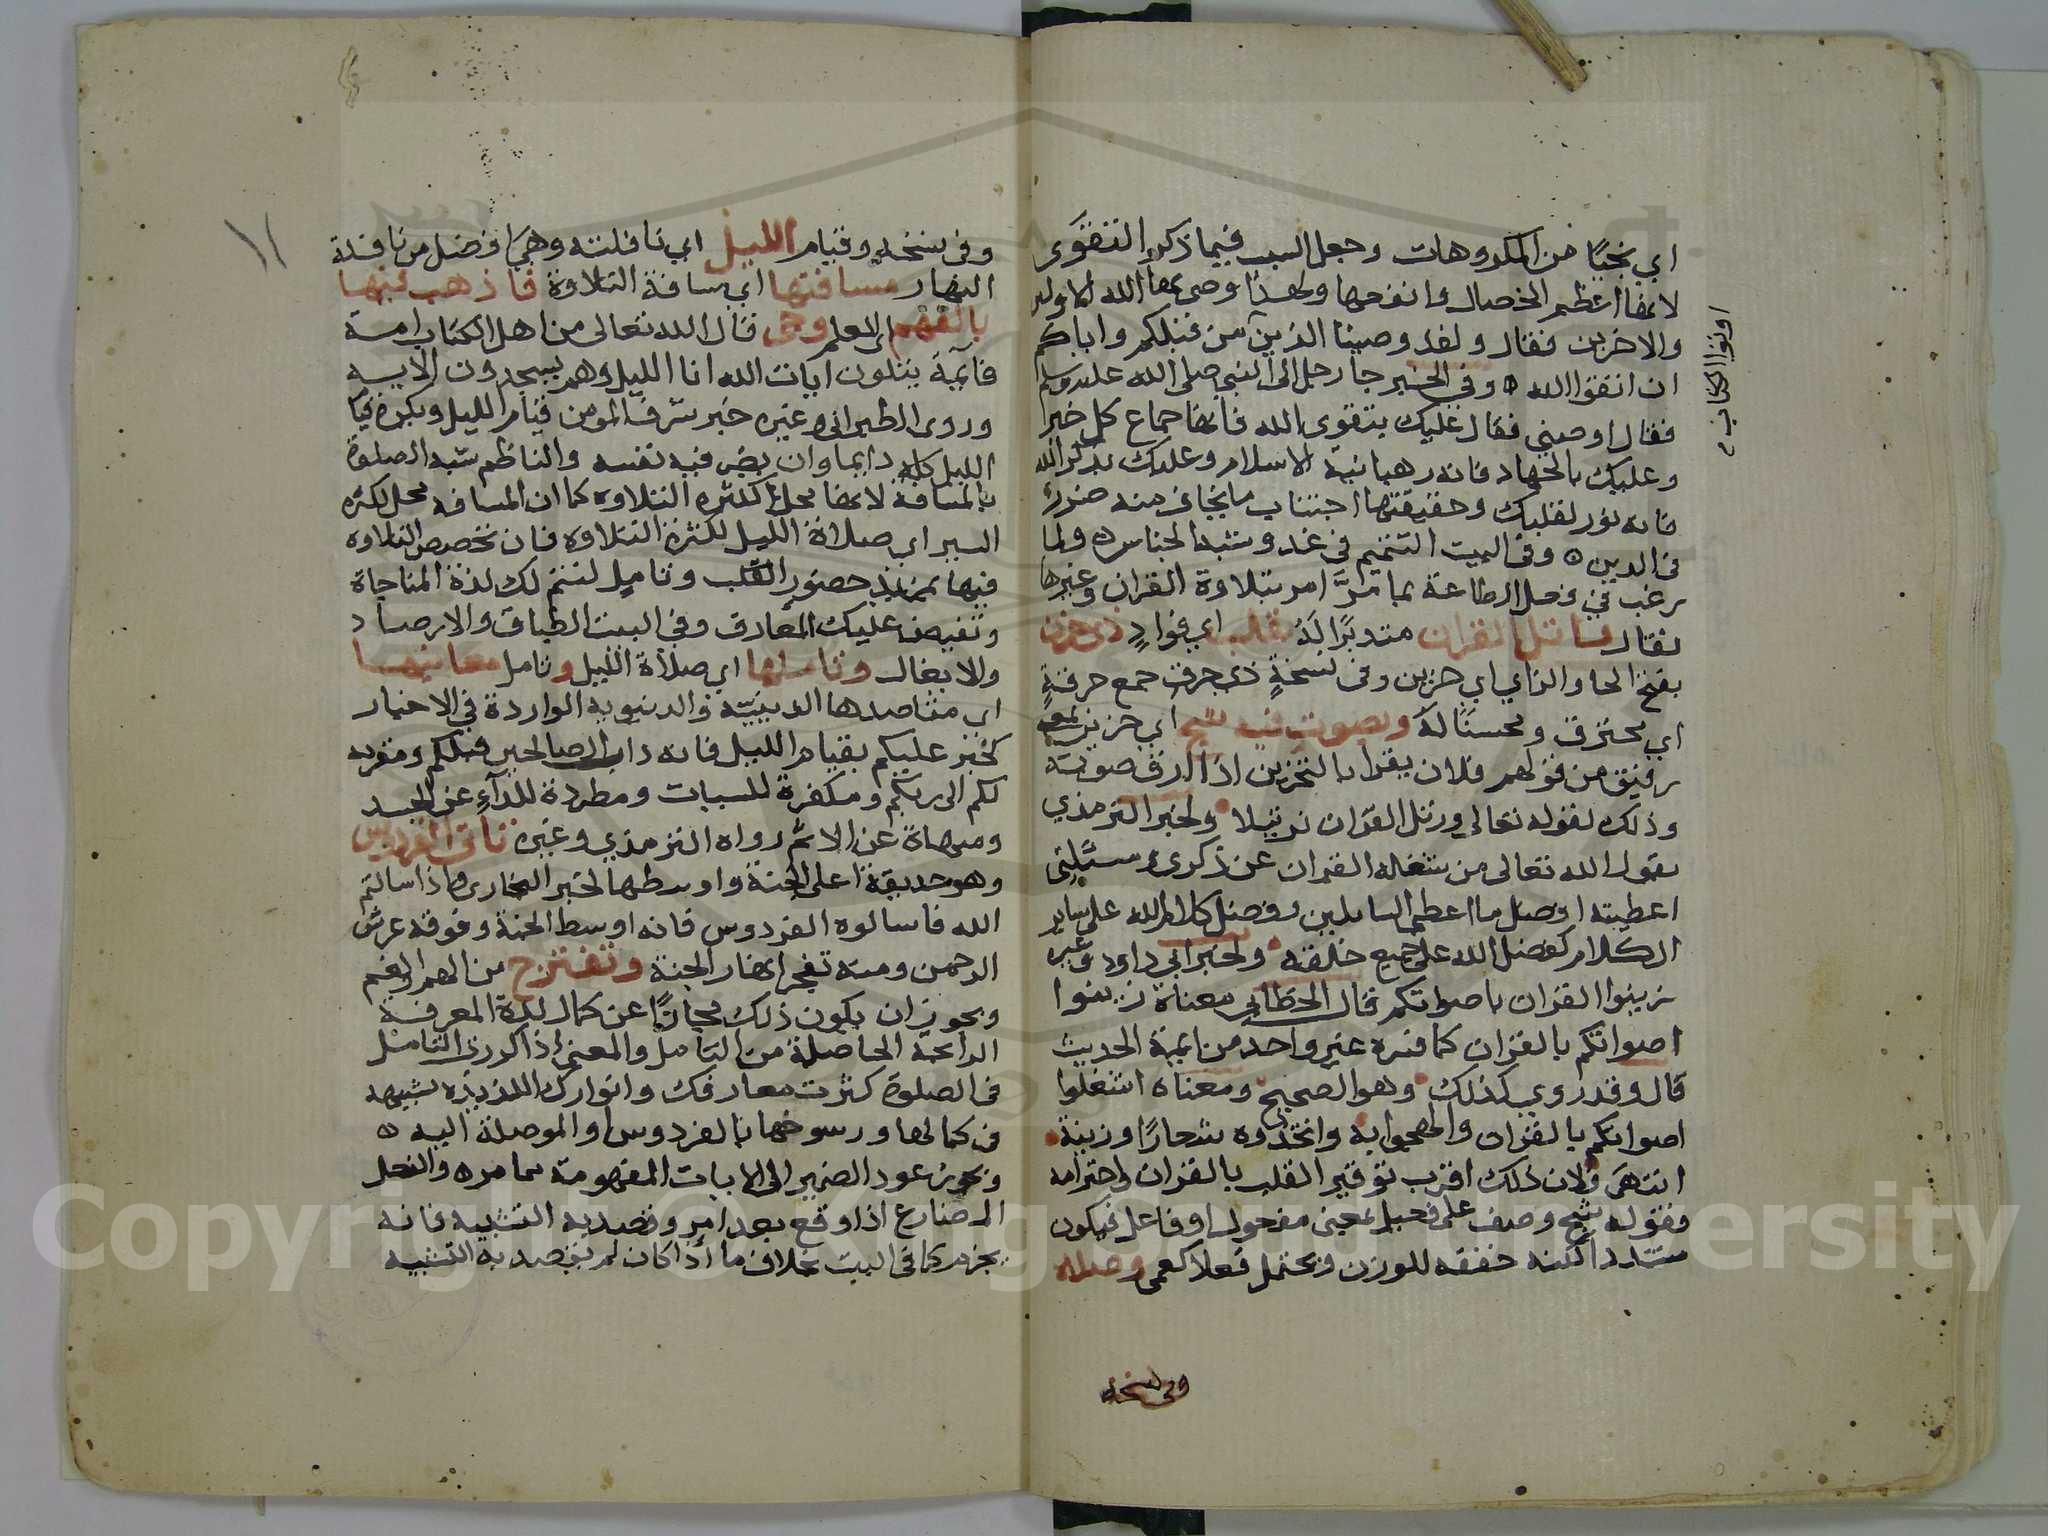 اي تجنبًا من المكروهات وجعل السبب فيما ذكر التقوى
لانها اعظم الخصال وانفعها ولهذا وصى بها الله الاولين
والاخرين فقال ولقد وصينا الذين من قبلكم واياكم
اوتوا الكتاب
ان اتقوا الله وفي الخبر جا رجل الى النبي صلى الله عليه وسلم
فقال اوصني فقال عليك بتقوى الله فانها جماع كل خير
وعليك بالجهاد فانه رهبانية الاسلام وعليك بذكر الله
فانه نور لقلبك وحقيقتها اجتناب ما يخاف منه ضررًا
في الدين وفي البيت التتميم في غد وشبه الجناس ولما
رغب في فعل الطاعة بما مرَّ امر بتلاوة القران وغيرها
فقال فاتل القران متدبرًا لَهُ بقلب اي فوادٍ ذي حزن
بفتح الحا والزاي اي حزين وفي نسخةٍ ذي حرق جمع حرقةٍ
اي محترق ومحسنًا لَهُ وبصوت فيه شج اي حزين بمعنى
رقيق من قولهم فلان يقرا بالتحزين اذا ارق صوته
وذلك لقوله تعالى ورتل القران ترتيلا ولخبر الترمذي
يقول الله تعالى من شغله القران عن ذكري ومسئلتي
اعطيته افضل ما اعطي السايلين وفضل كلام الله على ساير
الكلام كفضل الله على جميع خلقه ولخبر ابي داود وغيره
زينوا القران باصواتكم قال الخطابي معناه زينوا
اصواتكم بالقران كما فسره غير واحد من ايمة الحديث
قال وقد روي كذلك وهو الصحيح ومعناه اشغلوا
اصواتكم بالقران والهجوا به واتخذوه شعارًا وزينة
انتهى ولان ذلك اقرب توقير القلب بالقران واحترامه
وقوله شج وصف على فعيل بمعنى مفعول او فاعل فيكون
مشددا لكنه خففه للوزن ويحتمل فعلا كعمي وصلاة
وفي نسخة
١١
وفي نسخة وقيام الليل اي نافلته وهي افضل من نافلة
النهار مسافتها اي مسافة التلاوة فاذهب فيها
بالفهم اي العلم وجى قال الله تعالى من اهل الكتاب امة
قآيمة يتلون ايات الله انا الليل وهم يسجدون الاية
وروى الطبراني وغيره خبر شرف المومن قيام الليل ويكره قيام
الليل كله دايما وان لم يضر فيه نفسه والناظم شبه الصلوة
بالمسافة لانها محل لكثرة التلاوه كما ان المسافه محل لكثرة
السير اي صلاة الليل لكثرة التلاوه فان تخصيص التلاوه
فيها بمزيد حضور القلب وتامل لتتم لك لذة المناجاة
وتفيض عليك المعارف وفي البيت الطباق والارصاد
والايغال وتاملها اي صلاة الليل وتامل معانيها
اي مقاصدها الدينيّة والدنيويه الواردة في الاخبار
كخبر عليكم بقيام الليل فانه داب الصالحين قبلكم ومقربه
لكم الى ربكم ومكفرة للسيات ومطردة للدآءِ عن الجسد
ومنهاة عن الاثم رواه الترمذي وغيره تات الفردوس
وهو حديقة اعلى الجنة واوسطها لخبر البخاري واذا سالتم
الله فاسالوه الفردوس فانه اوسط الجنة وفوقه عرش
الرحمن ومنه تفجر انهار الجنة وتفترج من الهم والغم
ويجوز ان يكون ذلك مجازًا عن كمال لذة المعرفة
الدايمة الحاصلة من التامل والمعنى اذا كررت التامل
في الصلوة كثرت معارفك وانوارك اللذيذه لشبهه
في كمالها ورسوخها بالفردوس او الموصلة اليه
ويجوز عود الضمير الى الايات المفهومة مما مر والفعل
المضارع اذا وقع بعد امر وقصد به التشبيه فانه
يجزم كما في البيت بخلاف ما اذا كان لم يقصد به التشبيه
Copyright © King Saud University